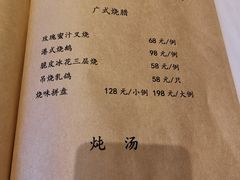 广式烧腊
玫瑰蜜汁叉烧 68 元/例
港式烧鹅 98 元/例
脆皮冰花三层烧 58 元/例
吊烧乳鸽 58 元/只
烧味拼盘 128 元/小例 198 元/大例
炖汤